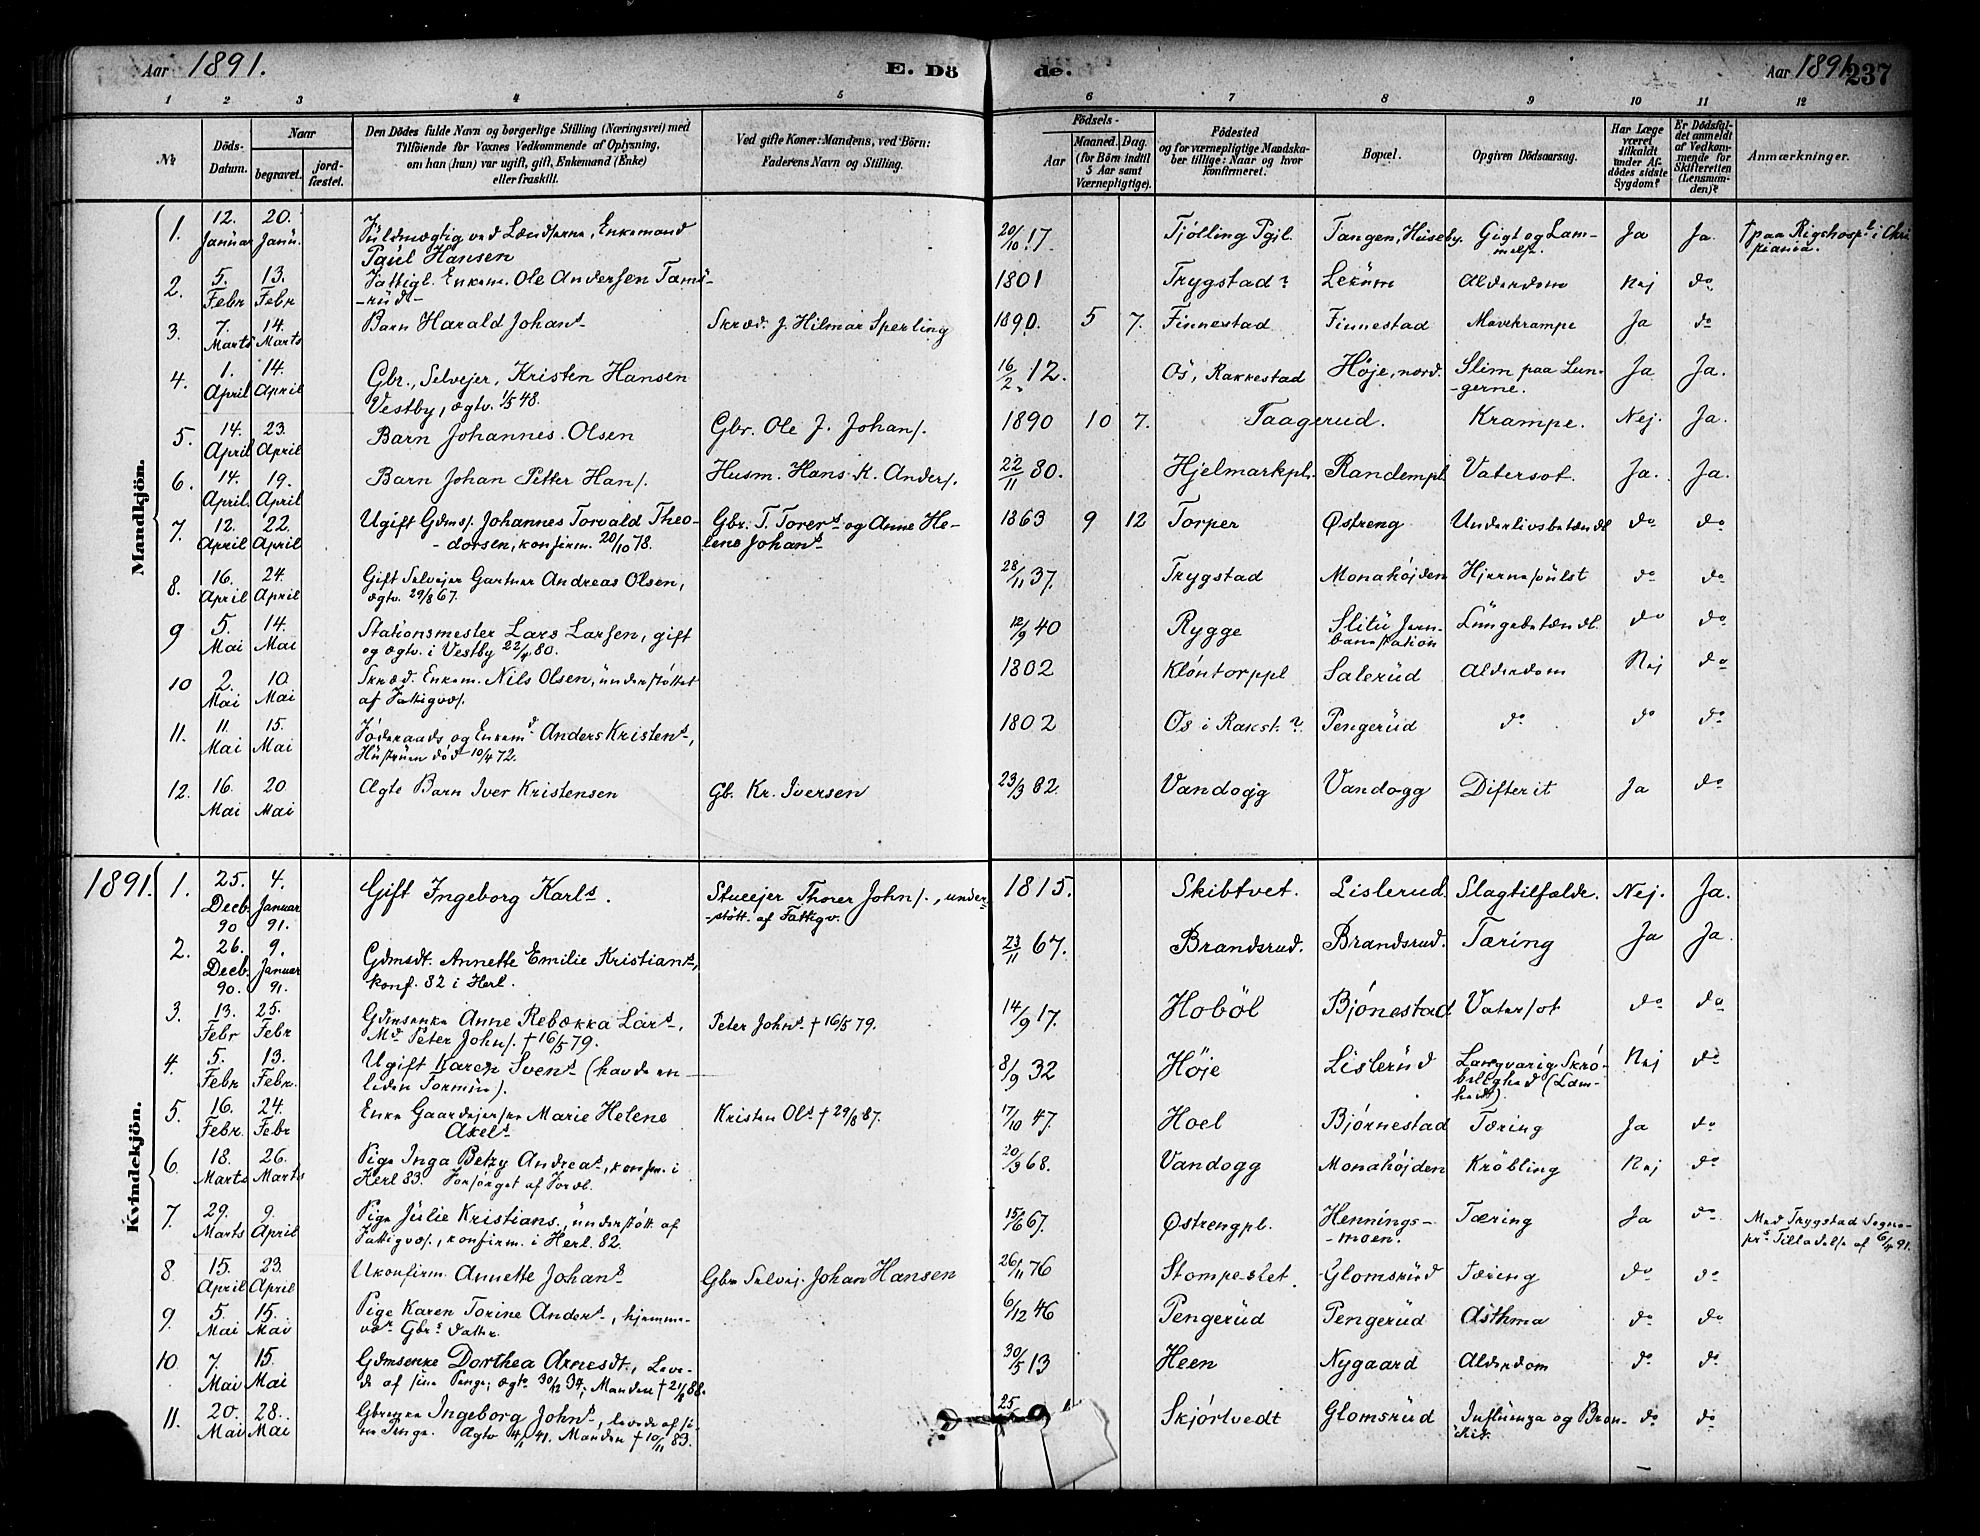 Aar 1891.
E. Dö
de.
Aar 1891
237
1 2 3 4 5 6 7 8 9 10 11 12
№
Döds-
Datum.
Naar
begravet.
jord-
fæstet.
Den Dödes fulde Navn og borgerlige Stilling (Næringsvei) med
Tilföiende for Voxnes Vedkommende af Oplysning,
om han (hun) var ugift, gift, Enkemand (Enke)
eller fraskilt.
Ved gifte Koner: Mandens, ved Börn:
Faderens Navn og Stilling.
Födsels-
Aar
Maaned. Dag.
(for Börn indtil
5 Aar samt
Værnepligtige).
Födested
og for værnepligtige Mandska-
ber tillige: Naar og hvor
konfirmeret.
Bopæl.
Opgiven Dödsaarsag.
Har Læge
været
tilkaldt
under Af-
dödes sidste
Sygdom?
Er Dödsfal-
det anmeldt
af Vedkom-
mende for
Skifteretten
(Lensman-
den)?
Anmærkninger.
Mandkjön.
1. 12. Januar 20. Janu. Fuldmægtig ved Lændserne, Enkemand
Paul Hansen 20/10 17. Tjölling Pgjl. Tangen, Huseby. Gigt og Lam-
melse. Ja Ja. † paa Rigshospt i Chri
stiania.
2. 5. Febr 13. Febr Fattigl. Enkem. Ole Andersen Tams-
-rud- 1801 Trygstad? Lerum Alderdom Nej do
3. 7. Marts 14. Marts Barn Harald Johans Skræd. J. Hilmar Sperling 1890. 5 7. Finnestad Finnestad Mavekrampe Ja do
4. 1. April 14. April Gbr., Selvejer, Kristen Hansen
Vestby, ægtv. 1/5 48. 16/2 12. Os, Rakkestad Höje, nord. Slim paa Lun-
-gerne. Ja Ja.
5. 14. April 23. April Barn Johannes Olsen Gbr. Ole J. Johans. 1890 10 7. Taagerud. Krampe. Nej. Ja.
6. 14. April 19. April Barn Johan Petter Hans. Husm. Hans K. Anders. 22/11 80. Hjelmarkpl. Randempl. Vatersot. Ja. Ja.
7. 12. April 22. April Ugift Gdms. Johannes Torvald Theo-
- dorsen, konfirm. 20/10 78. Gbr. T. Torers og Anne He-
lene Johans 1863 9 12 Torper Østreng Underlivsbetændl. do do
8. 16. April 24. April Gift Selvejer Gartner Andreas Olsen,
ægtv. 29/8 67. 28/11 37. Trygstad Monahøjden Hjernesvulst do do
9 5. Mai 14. Mai Stationsmester Lars Larsen, gift
og ægtv. i Vestby 22/4 80. 12/9 40 Rygge Slitu Jern-
banestation Lungebetændl. do do
10 2. Mai 10. Mai Skræd. Enkem. Nils Olsen, understøttet
af Fattigvæs. 1802 Kløntorppl Salerud Alderdom Nej do
11. 11. Mai 15. Mai Føderaads og Enkemd Anders Kristens,
Hustruen død 10/4 72. 1802 Os i Rakst.? Pengerud do do do
12. 16. Mai 20 Mai Ægte Barn Iver Kristensen Gb. Kr. Iversen 23/3 82. Vandogg Vandogg Difterit Ja do
1891.
Kvindekjön.
1. 25. Decb. 90 4. Januar 91. Gift Ingeborg Karls. Stueejer Thorer Johns., under-
-stött. af Fattigv. 1815. Skibtvet. Lislerud. Slagtilfælde. Nej. Ja.
2. 26. Decb. 90. 9. Januar 91. Gdmsdt. Annette Emilie Kristians,
konf. 82 i Herl. 23/11 67. Brandsrud. Brandsrud. Tæring Ja Ja.
3. 13. Febr 25. Febr Gdmsenke Anne Rebekka Lars,
Md Peter Johns. † 16/5 79. Peter Johns † 16/5 79. 14/9 17. Hobøl Bjønestad Vatersot do do
4. 5. Febr 13. Febr. Ugift Karen Svens (havde en
liden Formue). 8/9 32 Høje Lislerud Langvarig Skrø-
belighed (Lam-
hedt). Nej do
5. 16. Febr. 24. Febr Enke Gaardejerske Marie Helene
Akels Kristen Ols † 29/8 87. 17/10 47. Hoel Bjørnestad Tæring Ja do
6. 18. Marts 26. Marts Pige Inga Betzy Andreas, konfirm. i
Herl 83. Forsørget af Foræl. 20/3 68. Vandogg Monahøjden Kröbling Nej do
7. 29. Marts 9. April Pige Julie Kristians., understøtt. af
Fattigvæs., konfirm. i Herl. 82. 15/6 67. Østrengpl. Hennings-
-moen. Tæring Ja do Med Trygstad Sogne-
prs Tilladelse af 6/4 91.
8 15. April 23. April Ukonfirm. Annette Johans Gbr Selvej. Johan Hansen 26/11 76 Stompeslet. Glomsrud Tæring do do
9. 5. Mai 15. Mai Pige Karen Torine Anders, hjemme-
vær Gbrs datter. 6/12 46 Pengerud Pengerud Asthma do do
10. 7. Mai 15. Mai Gdmsenke Dorthea Arnesdt., Leve-
de af sine Penge; ægtv 30/12 34; Manden † 21/8 88. 30/5 13 Heen Nygaard Alderdom do do
11. 20. Mai 28. Mai Gbrenke Ingeborg Johns, levede af si-
ne Penge. Ægtv 4/1 41. Manden † 10/11 83. 25 Skjørtvedt Glomsrud Influenza og Bron-
chit. do do